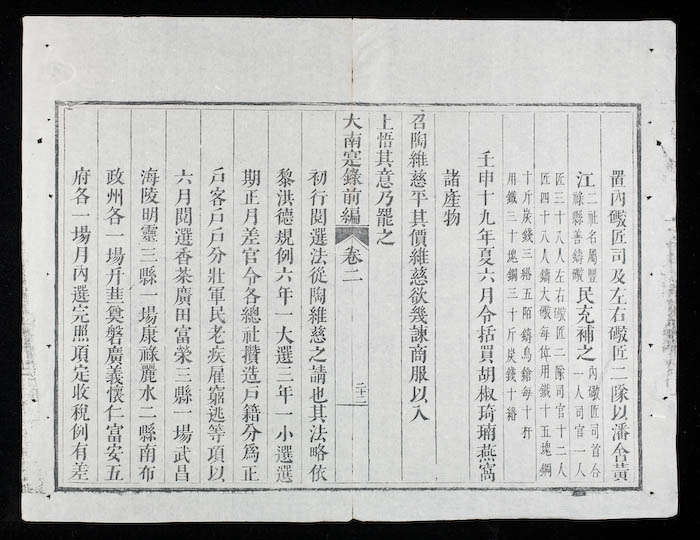 置內礮匠司及左右礮匠二隊以潘舍黃
江二社名屬豐祿縣善鑄礮民充補之內礮匠司首合一人司官一人
匠三十八人左右礮匠二隊司官十二人
匠四十八人鑄大礮每位用鐵十五塊鋼
十斤炭錢三緡五陌鑄鳥鎗每十杆
用鐵三十塊鋼三十斤炭錢十緡
壬申十九年夏六月令括買胡椒琦瑀燕窩
諸產物
召陶維慈平其價維慈欲幾諫商服以入
上悟其意乃罷之
大南寔錄前編 卷二 二十二
初行閱選法從陶維慈之請也其法略依
黎洪德規例六年一大選三年一小選選
期正月差官令各總社攢造戶籍分爲正
戶客戶戶分壯軍民老疾雇窮逃等項以
六月閱選香茶廣田富榮三縣一場武昌
海陵明靈三縣一場康祿麗水二縣南布
政州各一場升華奠磐廣義懷仁富安五
府各一場月內選完照項定收稅例有差